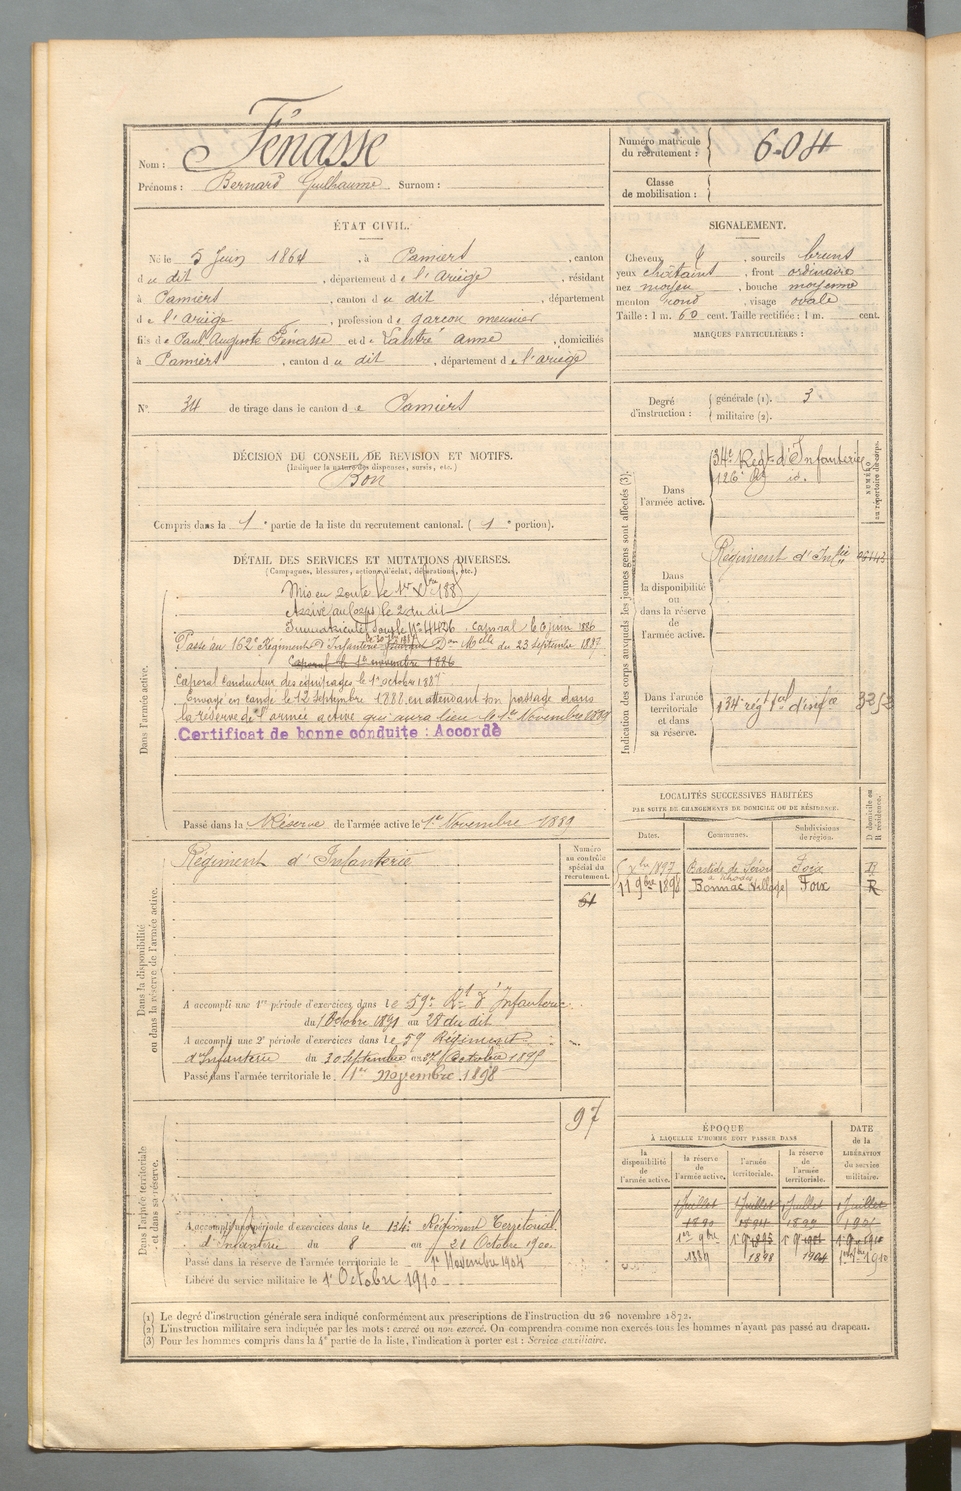 Nom : Fénasse
Prénoms : Bernard Guilhaume Surnom :
Numéro matricule
du recrutement : 604
Classe
de mobilisation :
ÉTAT CIVIL.
Né le 5 Juin 1864, à Pamiers, canton
du dit, département de l'Ariège, résidant
à Pamiers, canton du dit, département
de l'Ariège, profession de garçon meunier
fils de Paul Auguste Fénasse et de Lautré Anne, domiciliés
à Pamiers, canton du dit, département de l'ariège
SIGNALEMENT.
Cheveux, sourcils bruns
yeux chatains, front ordinaire
nez moyen, bouche moyenne
menton rond, visage ovale
Taille : 1 m. 60 cent. Taille rectifiée : 1 m. cent.
MARQUES PARTICULIÈRES :
N° 34 de tirage dans le canton de Pamiers
Degré
d'instruction :
générale (1). 3
militaire (2).
DÉCISION DU CONSEIL DE REVISION ET MOTIFS.
(Indiquer la nature des dispenses, sursis, etc.)
Bon
Compris dans la 1e partie de la liste du recrutement cantonal. (1e portion).
DÉTAIL DES SERVICES ET MUTATIONS DIVERSES.
(Campagnes, blessures, actions d'éclat, décorations, etc.)
Dans l'armée active.
Mis en route le 1er Xbre 188
Arrivé au corps le 2 du dit
Immatriculé sous le N° 4426. caporal le 6 juin 1886
Passé au 162e Régiment d'Infanterie Don Melle du 23 septembre 1887
Caporal le 1er novembre 1886
Caporal conducteur des équipages le 1er octobre 1887
Envoyé en congé le 12 Septembre 1888 en attendant son passage dans
la réserve de l'armée active qui aura lieu le 1er Novembre 1889
Certificat de bonne conduite : Accordé
Passé dans la Réserve de l'armée active le 1er Novembre 1889
Indication des corps auxquels les jeunes gens sont affectés (3).
NUMÉRO
au répertoire du corps.
Dans
l'armée active.
34e Régt d'Infanterie
126e Rg id.
Dans
la disponibilité
ou
dans la réserve
de
l'armée active.
Régiment d'Infie
Dans l'armée
territoriale
et dans
sa réserve.
134 régt tal d'infie 3252
LOCALITÉS SUCCESSIVES HABITÉES
PAR SUITE DE CHANGEMENTS DE DOMICILE OU DE RÉSIDENCE.
Dates. Communes. Subdivisions
de région. D domicile ou
R résidence.
Xbre 1897 Bastide de Sérou Foix R
11 9bre 1898 Bonnac Village Foix R
Dans la disponibilité
ou dans la réserve de l'armée active.
Numéro
au contrôle
spécial du
recrutement.
Régiment d'Infanterie
61
A accompli une 1re période d'exercices dans le 59e Rt d'Infanterie
du 1 Octobre 1891 au 28 du dit
A accompli une 2e période d'exercices dans le 59 Régiment
d'Infanterie du 30 septembre au 27 Octobre 1895
Passé dans l'armée territoriale le 1er Novembre 1898
97
Dans l'armée territoriale
et dans sa réserve.
A accompli une période d'exercices dans le 134e Régiment Territorial
d'Infanterie du 8 au 21 Octobre 1900
Passé dans la réserve de l'armée territoriale le 1er Novembre 1904
Libéré du service militaire le 1er Octobre 1910
ÉPOQUE
À LAQUELLE L'HOMME DOIT PASSER DANS
DATE
de la
LIBÉRATION
du service
militaire.
la
disponibilité
de
l'armée active.
la réserve
de
l'armée active.
l'armée
territoriale.
la réserve
de
l'armée
territoriale.
1 Juillet 1 Juillet 1 Juillet 1 Juillet
1890 1894 1899
1er 9bre
1889 1898 1904 1910
(1) Le degré d'instruction générale sera indiqué conformément aux prescriptions de l'instruction du 26 novembre 1872.
(2) L'instruction militaire sera indiquée par les mots : exercé ou non exercé. On comprendra comme non exercés tous les hommes n'ayant pas passé au drapeau.
(3) Pour les hommes compris dans la 4e partie de la liste, l'indication à porter est : Service auxiliaire.